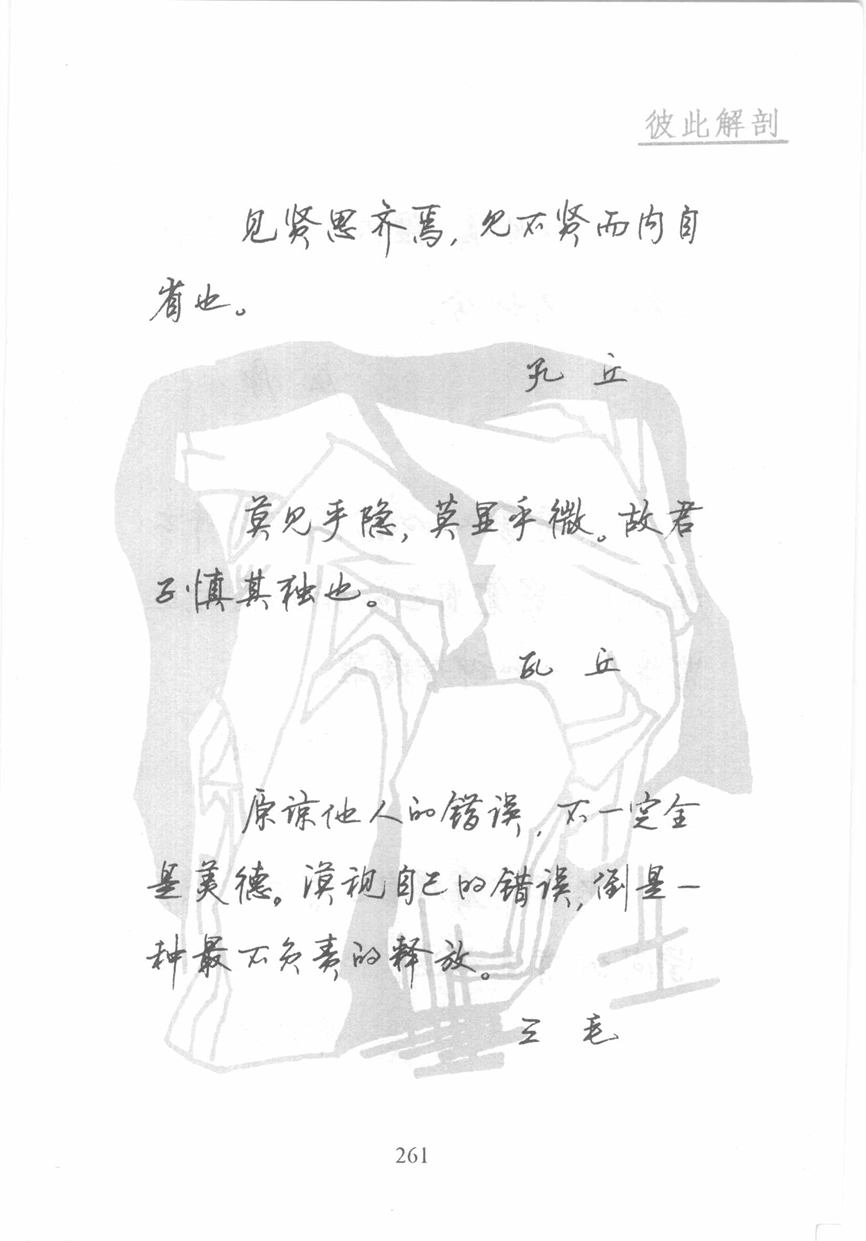 彼此解剖
见贤思齐焉,见不贤而内自
省也。
孔 丘
莫见乎隐,莫显乎微。故君
子慎其独也。
孔 丘
原谅他人的错误,不一定全
是美德。漠视自己的错误,倒是一
种最不负责的释放。
三 毛
261